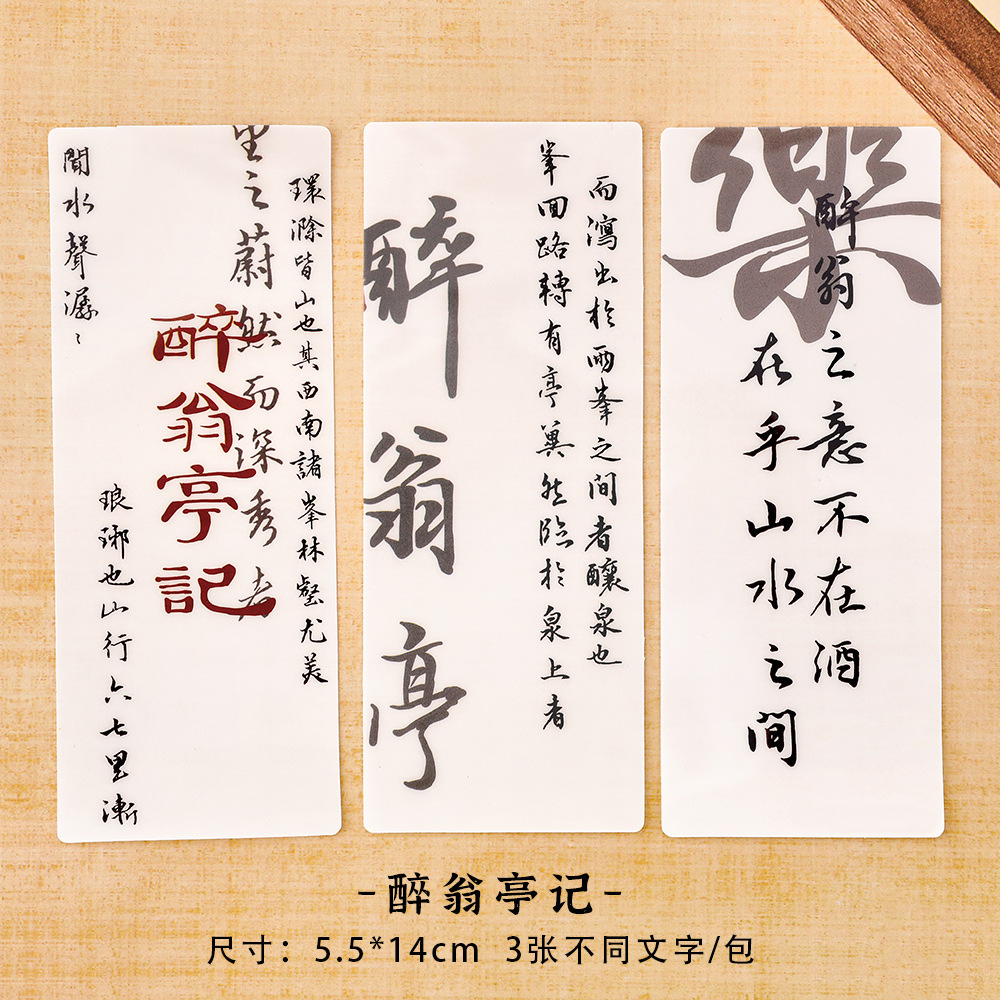 環滁皆山也其西南諸峯林壑尤美
望之蔚然而深秀者
醉翁亭記
琅琊也山行六七里漸
聞水聲潺〻
而瀉出於兩峯之間者釀泉也
峯回路轉有亭翼然臨於泉上者
醉翁亭
樂
醉翁之意不在酒
在乎山水之間
-醉翁亭记-
尺寸：5.5*14cm 3张不同文字/包